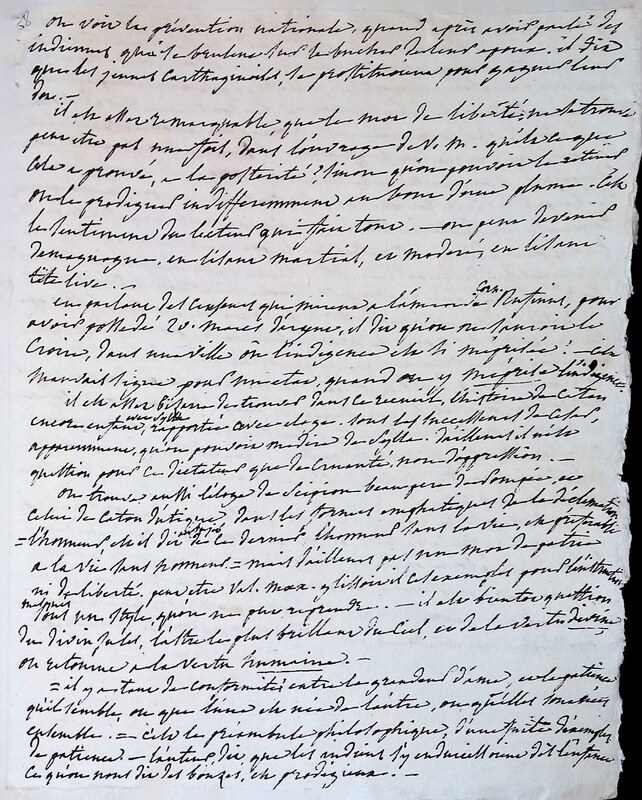 on voit la prévention nationale, quand après avoir parlé des
indiennes, qui se brulent sur le bucher de leurs epoux. il dit
que les jeunes Carthaginoises, se prostituoient pour gagner leur
dot. —
il est assez remarquable que le mot de liberté, ne se trouve
peut etre pas une fois, dans l'ouvrage de V. M. qu'est ce que
cela a prouvé, a la postérité? sinon qu'on pouvoit le retenir
ou le prodiguer indifferemment au bout d'une plume. C'est
le sentiment du lecteur qui fait tout. — on peut devenir
demagogue, en lisant martial, et modéré, en lisant
tite live. —
en parlant des Censeurs qui mirent a l'amende Corn. Rufinus, pour
avoir possédé 20. marcs d'argent, il dit qu'on ne sauroit le
croire, dans une ville où l'indigence est si méprisée! — C'est
mauvais signe pour un état, quand on y méprise l'indigence.
il est assez bisarre de trouver dans ce recueil, l'histoire de Caton
encore enfant, avec Sylla rapportée avec eloge. tous les successeurs de Cesar,
apparemment, qu'on pouvoit médire de Sylla. d'ailleurs il n'est
question pour ce dictateur que de cruauté, non d'oppression. —
On trouve aussi l'éloge de Scipion beaupere de Pompée, et
celui de Caton d'utique, dans les formes emphatiques de la déclamation
= l'honneur, est il dit de ce dernier, l'honneur sans la vie, est préférable
a la vie sans honneur = mais d'ailleurs pas un mot de patrie
ni de liberté. peut etre Val. max. glissoit il ces exemples pour l'instruction
sous un style, qu'on ne put reprendre. — il est bientot question
du divin jules, l'astre le plus brillant du Ciel, et de la vertu divine
on retourne a la vertu humaine. —
= il y a tant de conformité entre la grandeur d'ame, et la patience
qu'il semble, ou que l'une est née de l'autre, ou qu'elles sont nées
ensemble. = c'est le préambule philosophique, d'une suite d'exemples
de patience. — l'auteur, dit que les indiens s'y endurcissoient dès l'enfance
ce qu'on nous dit des bonzes, est prodigieux. —